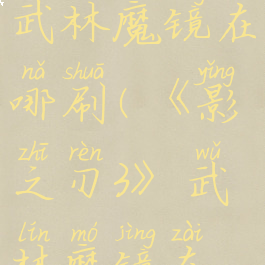 武林魔镜在
nǎ shuā yǐng
哪刷(《影
zhī rèn wǔ
之刃3》武
lín mó jìng zài
林魔镜在